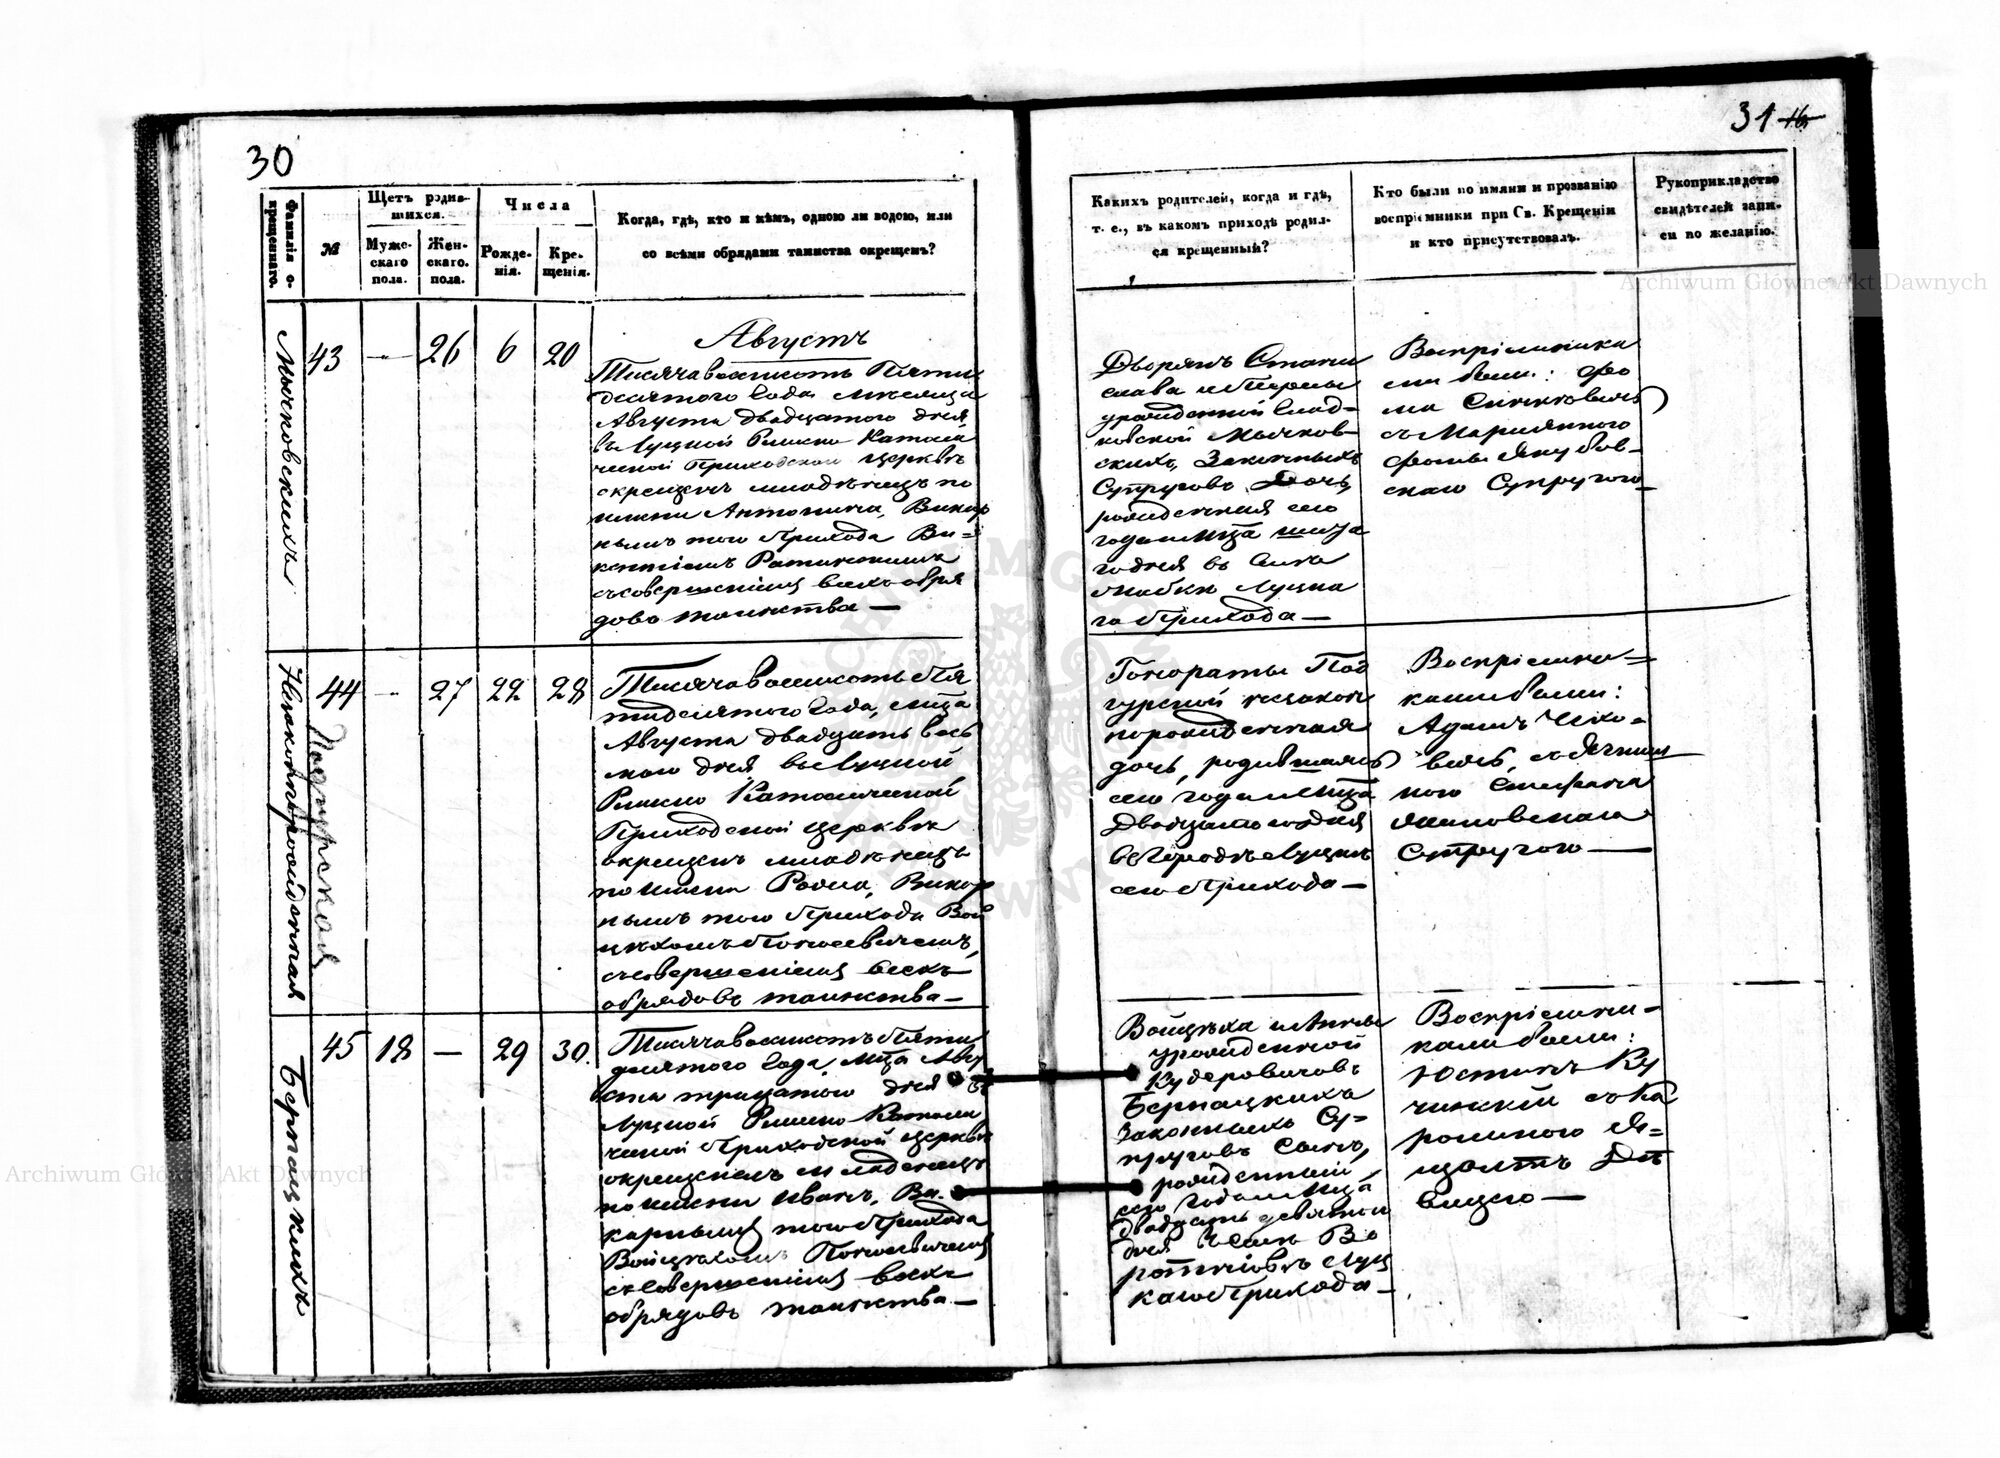 30
Фамилія о-
крещеннаго.
№
Щетъ родив-
шихся.
Муже-
скаго
пола.
Жен-
скаго.
пола.
Числа
Рожде-
нія.
Кре-
щенія.
Когда, гдѣ, кто и кѣмъ, одною ли водою, или
со всѣми обрядами таинства окрещенъ?
Мычковскихъ
43 — 26 6 20
Августъ
Тысяча восемьсотъ Пяти
десятого Года мѣсяца
Августа двадцатого дня
въ Луцкой Римско Католи
ческой Приходской Церквѣ
окрещенъ младѣнецъ по
имени Антонина, Викар
нымъ того Прихода Ви=
кентіемъ
съ совершеніемъ всехъ обря
довъ таинства —
Незаконнорожденная
Подгурская
44 — 27 22 28
Тысяча восемьсотъ Пя
тидесятого Года, Мца
Августа двадцать вось
мого дня, въ Луцкой
Римско Католической
Приходской Церквѣ
окрещенъ младѣнецъ
по имени Роза, Викар
нымъ того Прихода Вой
цѣхомъ
съ совершеніемъ всехъ
обрядовъ таинства —
Бернацкихъ
45 18 — 29 30.
Тысяча восемьсотъ Пяти
десятого Года, Мца Авгу
ста тридцатого дня въ
Луцкой Римско Католи
ческой Приходской Церквѣ
окрещенъ младенецъ
по имени Иванъ, Ви-
карнымъ того Прихода
Войцѣхомъ
съ Совершеніемъ всехъ
обрядовъ таинства —
31 16
Какихъ родителей, когда и гдѣ,
т. е., въ какомъ приходѣ родил-
ся крещенный?
Кто были по имяни и прозванію
воспріемники при Св. Крещеніи
и кто присутствовалъ.
Рукоприкладство
свидѣтелей запи-
си по желанію.
Дворянъ Стани
слава и Терезы
урожденной
Мычков-
скихъ, Законныхъ
Супруговъ Дочь,
рожденная сего
года и Мца шеста
го дня въ Селѣ
Луцка
го Прихода —
Воспріемника
ми были: Фо
ма
съ Маріянною
Якубов-
скаго Супругою —
Гонораты Под
гурской незакон
норожденная
дочь, родившаяся
сего года и Мца
Двадцать второго дня
въ Городѣ Луцкѣ
сего Прихода —
Воспріемни=
ками были:
Адамъ Чехо=
вичъ, съ
ною Стефана
Супругою —
Войцѣха и Анны
урожденной
Кудеровичовъ
Бернацкихъ
Законныхъ Су=
пруговъ Сынъ,
рожденный
сего года и Мца
двадцать девятого
дня въ Селѣ Во
ротніовѣ Луц
каго Прихода —
Воспріемни-
ками были:
Юстинъ Ку
чинскій съ Ка
ролиною
вицею —
Archiwum Główne Akt Dawnych
Archiwum Główne Akt Dawnych